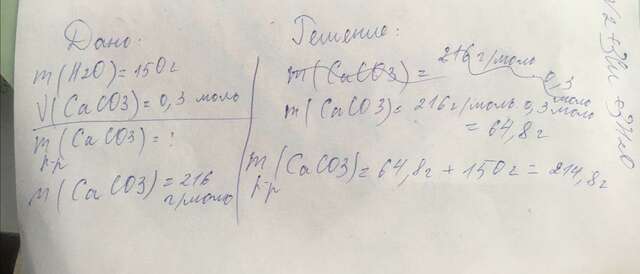 Дано:
m(H2O)=150г
V(CaCO3)=0,3 моль
m(CaCO3)=?
р-р
M(CaCO3)=216
г/моль
Решение:
m(CaCO3)=
216г/моль 0,3
моль
m(CaCO3)=216г/моль 0,3 моль
=64,8г
m(CaCO3)=64,8г+150г=214,8г
р-р